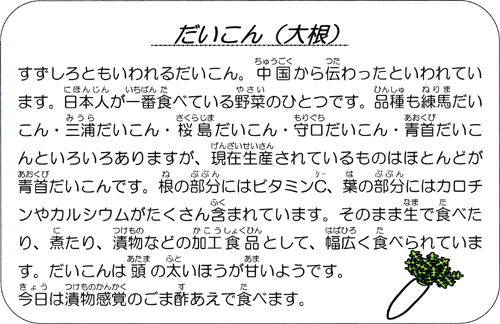 だいこん（大根）
すずしろともいわれるだいこん。中国から伝わったといわれてい
ます。日本人が一番食べている野菜のひとつです。品種も練馬だい
こん・三浦だいこん・桜島だいこん・守口だいこん・青首だいこ
んといろいろありますが、現在生産されているものはほとんどが
青首だいこんです。根の部分にはビタミンC、葉の部分にはカロチ
ンやカルシウムがたくさん含まれています。そのまま生で食べた
り、煮たり、漬物などの加工食品として、幅広く食べられていま
す。だいこんは頭の太いほうが甘いようです。
今日は漬物感覚のごま酢あえで食べます。